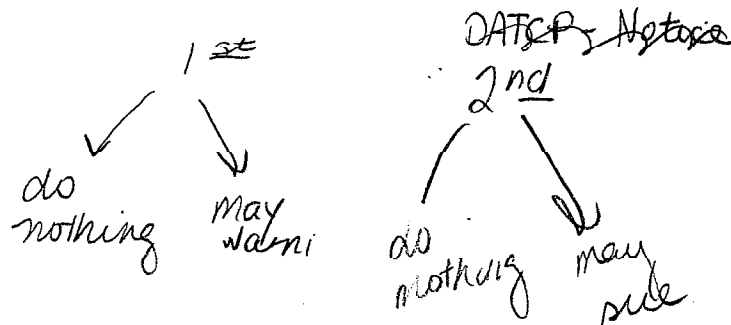 1st
do
nothing
may
warni
DATCP, Notice
2nd
do
nothing
may
sue